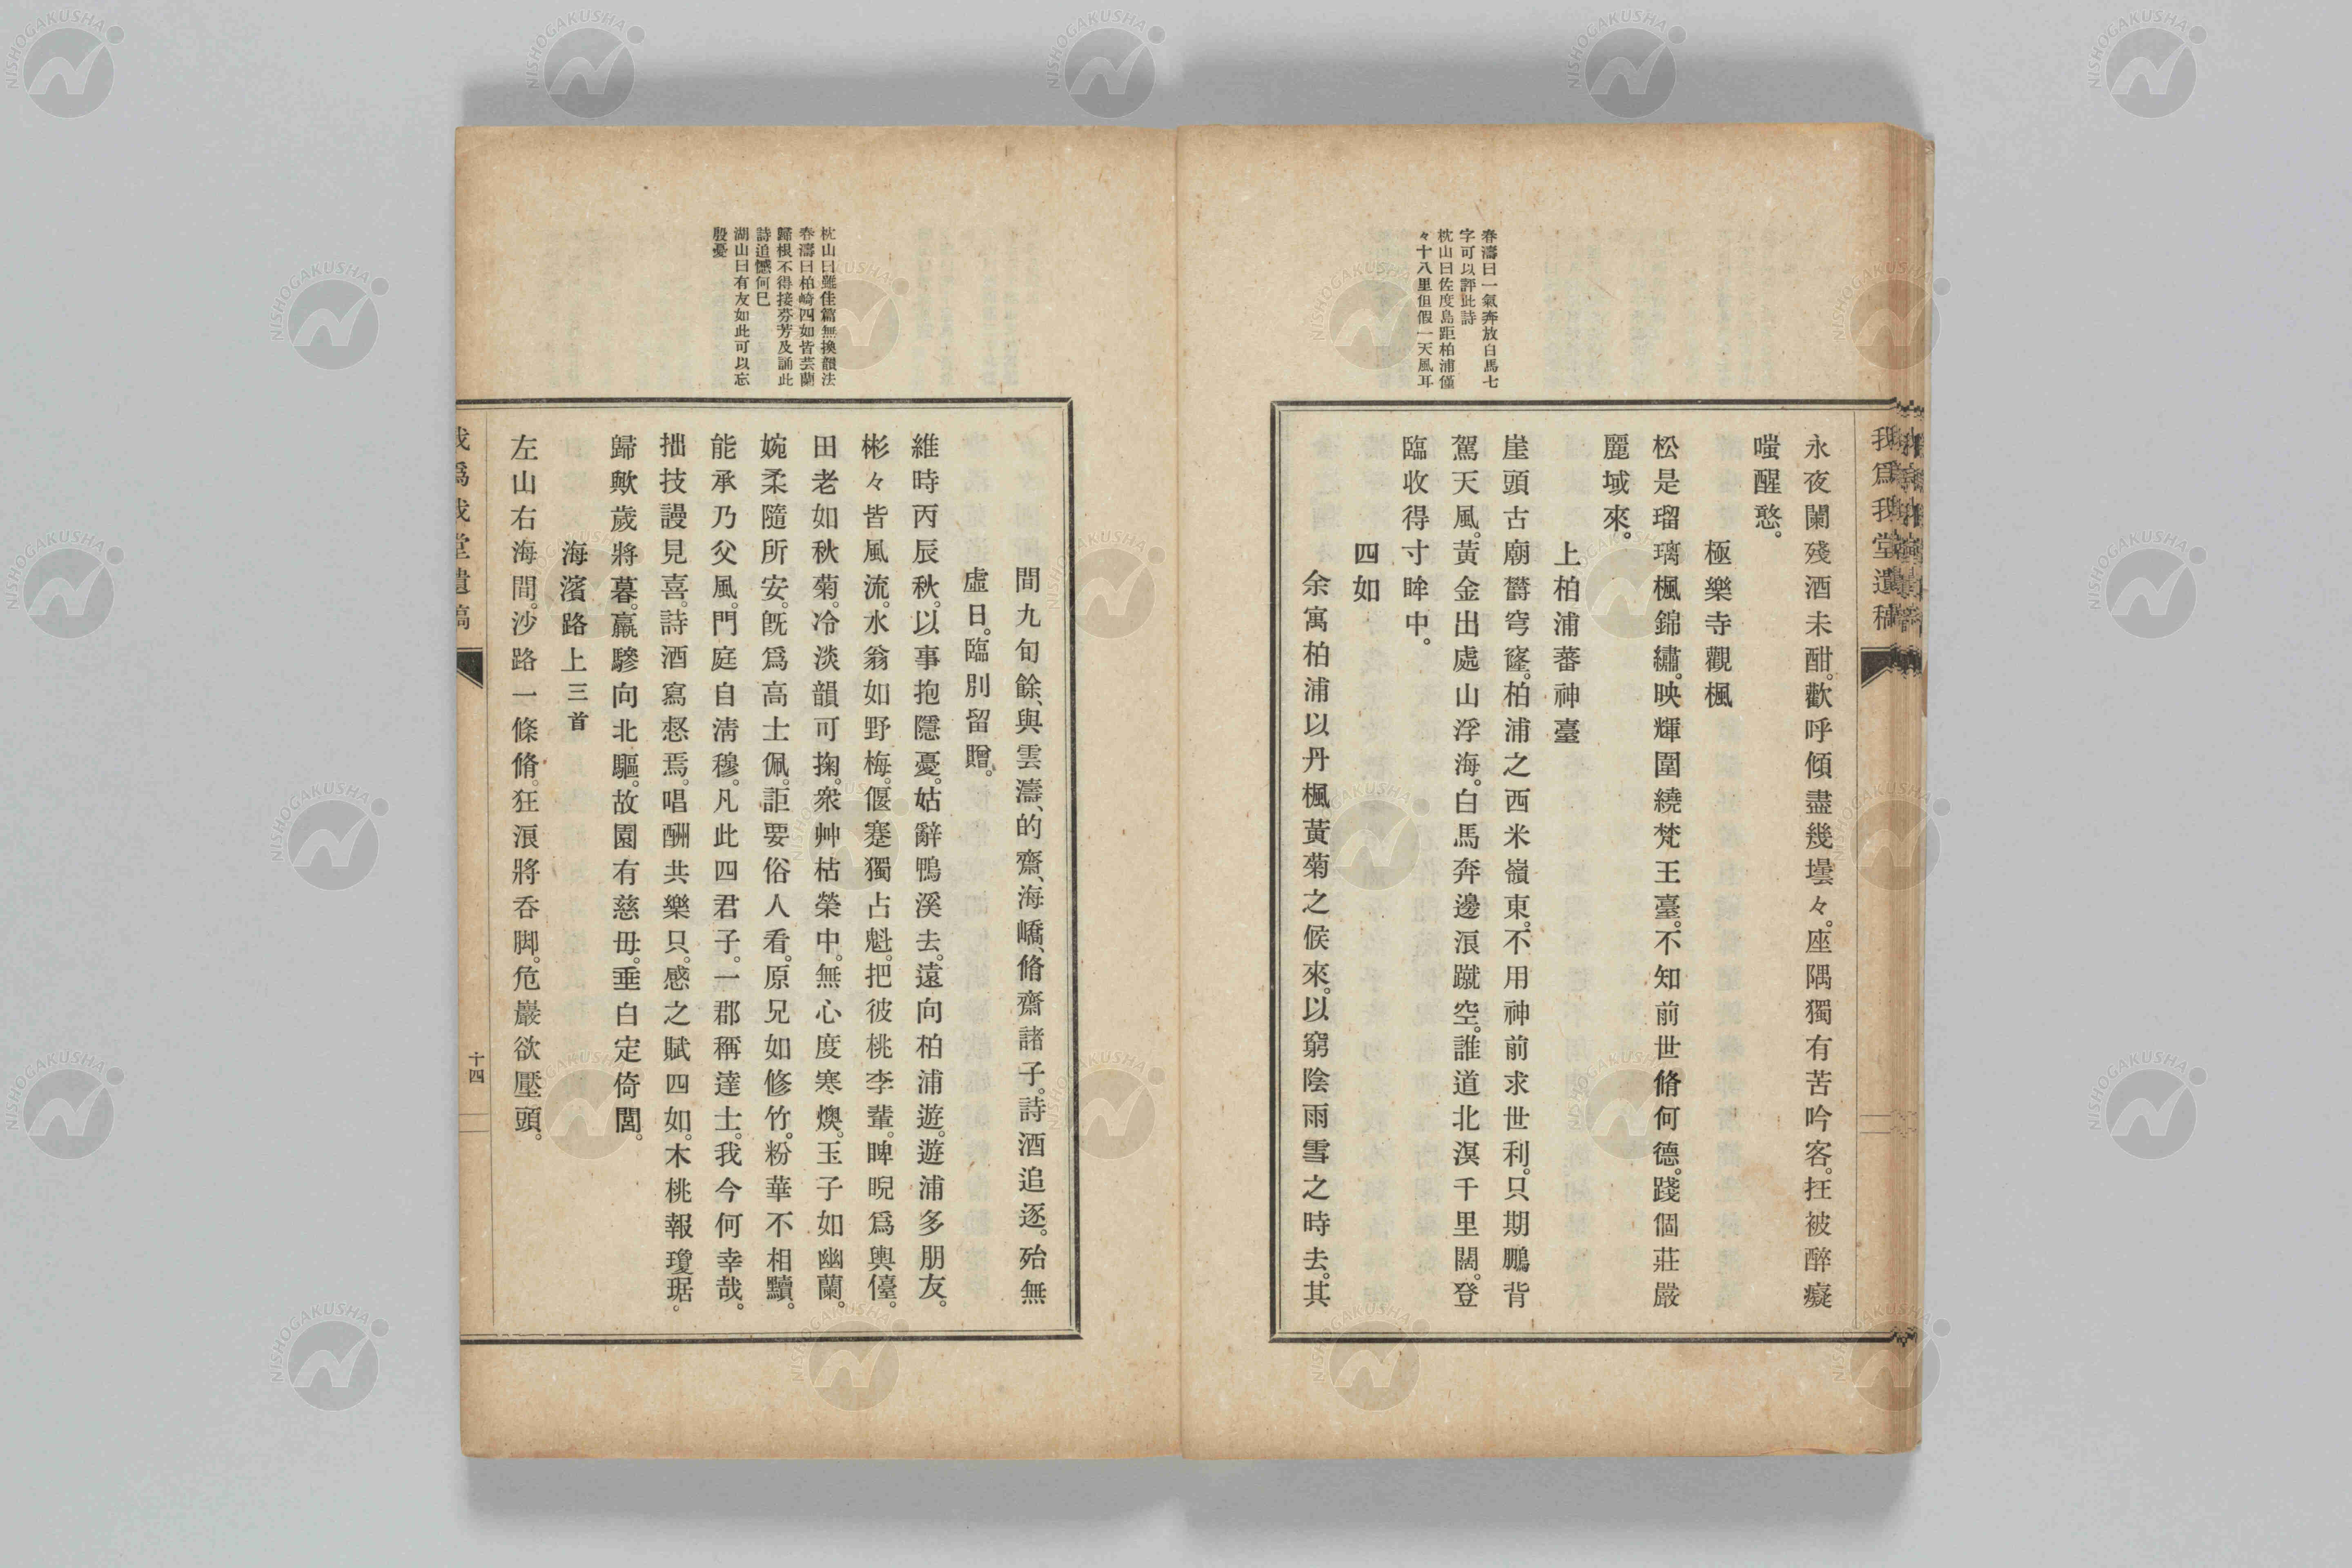 我爲我堂遺稿
春濤曰一氣奔放白馬七
字可以評此詩
枕山曰佐度島距柏浦僅
々十八里但假一天風耳
永夜闌殘酒未酣。歡呼傾盡幾壜々。座隅獨有苦吟客。抂被醉癡
嗤醒憨。
極樂寺觀楓
松是瑠璃楓錦繡。映輝圍繞梵王臺。不知前世脩何德。踐個莊嚴
麗域來。
上柏浦蕃神臺
崖頭古廟欝穹窿。柏浦之西米嶺東。不用神前求世利。只期鵬背
駕天風。黃金出處山浮海。白馬奔邊浪蹴空。誰道北溟千里闊。登
臨收得寸眸中。
四如
余寓柏浦以丹楓黃菊之候來。以窮陰雨雪之時去。其
枕山曰雖佳篇無換韻法
春濤曰柏崎四如皆芸蘭
歸根不得接芬芳及誦此
詩追憾何巳
湖山曰有友如此可以忘
殷憂
間九旬餘、與雲濤、的齋、海嶠、脩齋諸子。詩酒追逐。殆無
虛日。臨別留贈。
維時丙辰秋。以事抱隱憂。姑辭鴨溪去。遠向柏浦遊。遊浦多朋友。
彬々皆風流。水翁如野梅。偃蹇獨占魁。把彼桃李輩。睥睨爲輿儓。
田老如秋菊。冷淡韻可掬。衆艸枯榮中。無心度寒燠。玉子如幽蘭。
婉柔隨所安。旣爲高士佩。詎要俗人看。原兄如修竹。粉華不相黷。
能承乃父風。門庭自淸穆。凡此四君子。一郡稱達士。我今何幸哉。
拙技謾見喜。詩酒寫愁焉。唱酬共樂只。感之賦四如。木桃報瓊琚。
歸歟歲將暮。羸驂向北驅。故園有慈母。垂白定倚閭。
海濱路上三首
左山右海間。沙路一條脩。狂浪將呑脚。危巖欲壓頭。
我爲我堂遺稿
十四
NISHOGAKUSHA